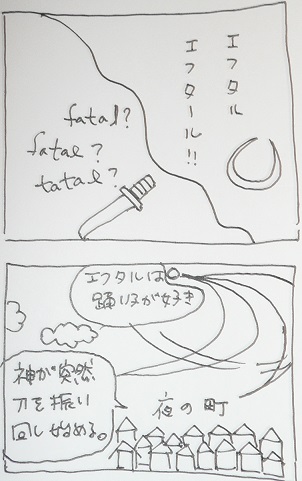 エフタル
エフタール!!
fatal?
fatal?
tatal?
エフタルは
踊り子が好き
神が突然
刀を振い
回し始める。
夜の町